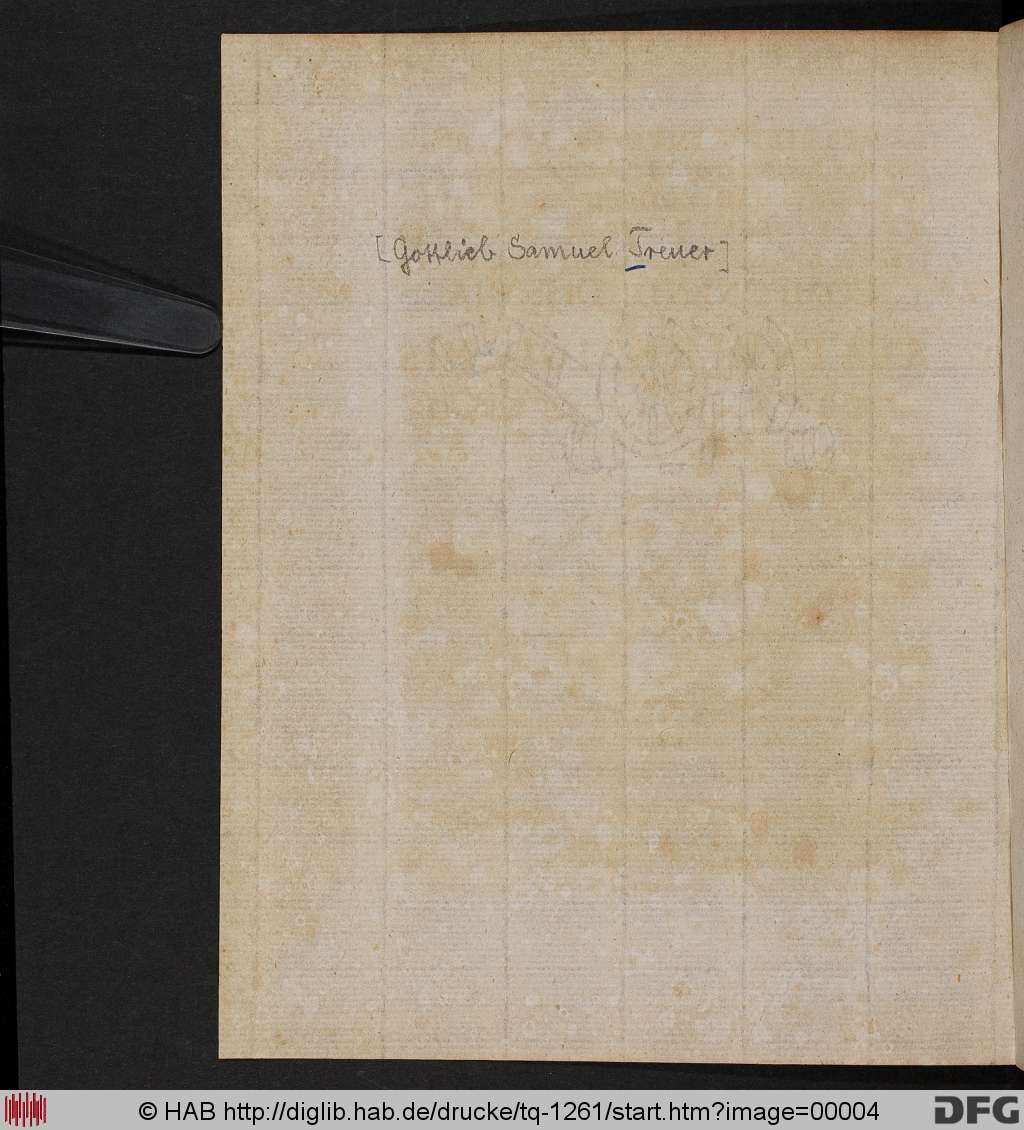 [Gottlieb Samuel Treuer]
© HAB http://diglib.hab.de/drucke/tq-1261/start.htm?image=00004
DFG